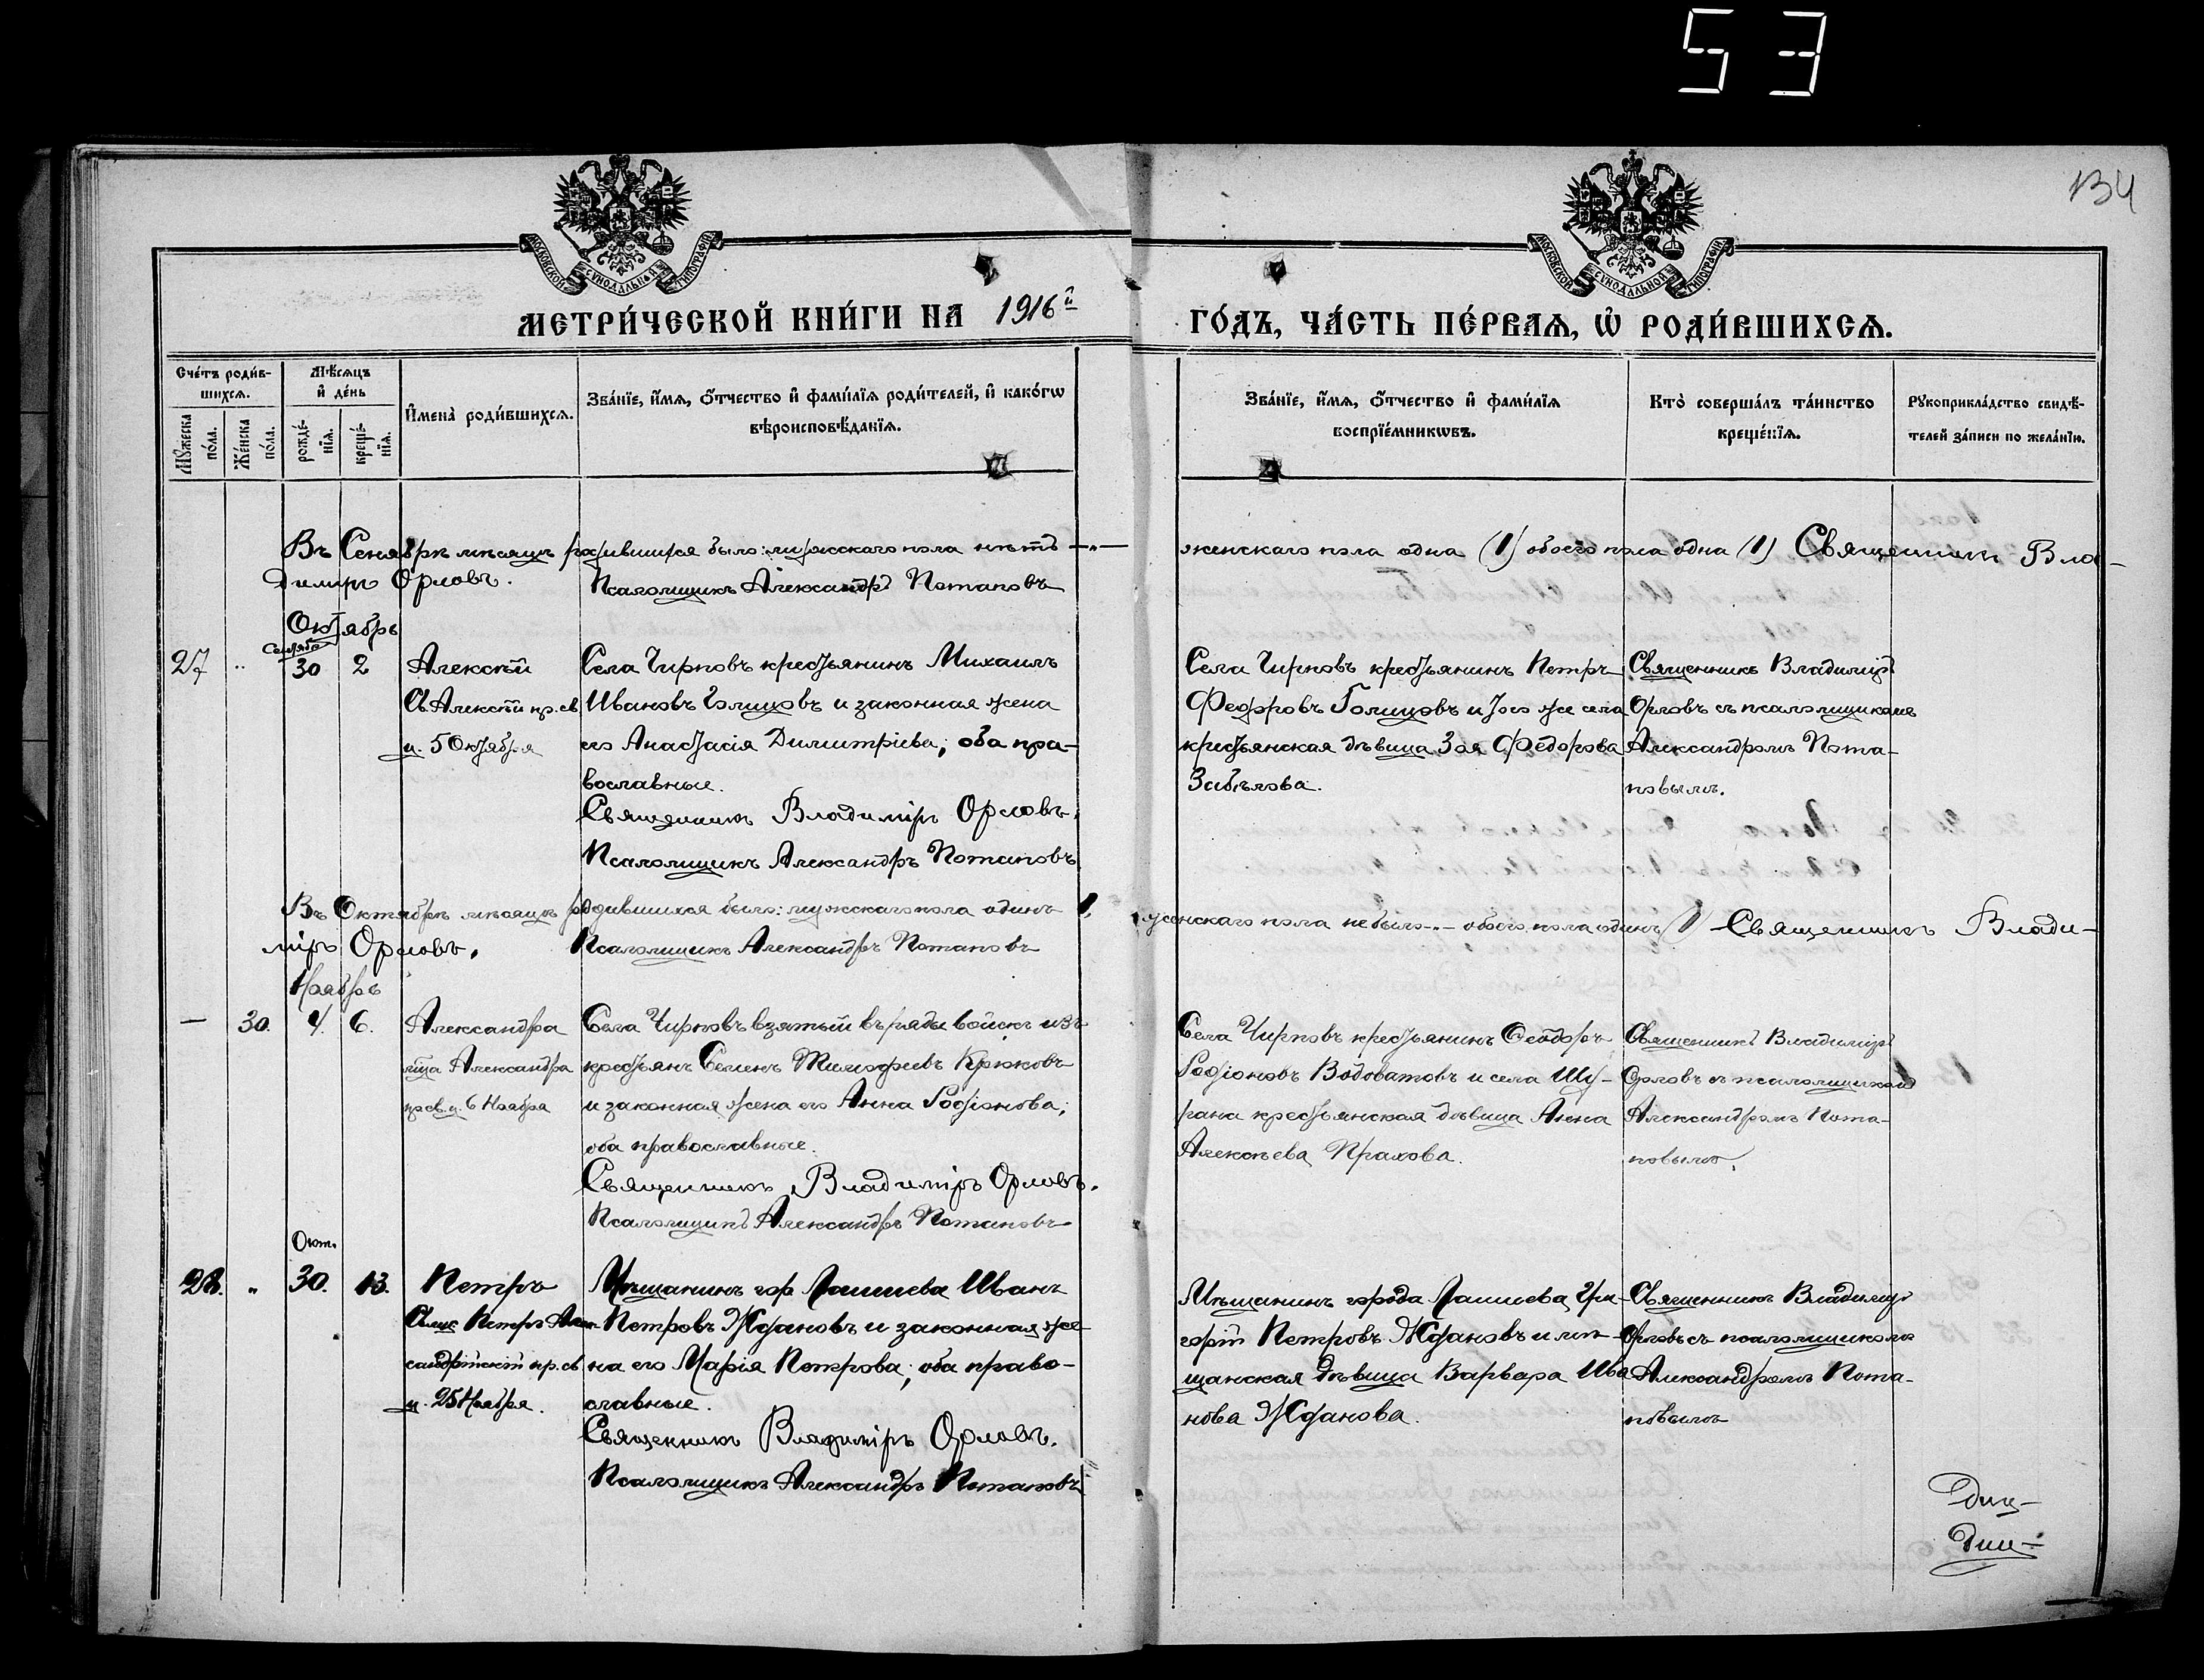 53
134
МОСКОВСКОЙ СѴНОДАЛЬНОЙ ТИПОГРАФІИ
МОСКОВСКОЙ СѴНОДАЛЬНОЙ ТИПОГРАФІИ
МЕТРИ́ЧЕСКОЙ КНИ́ГИ НА 1916й
ГО́ДЪ, ЧА́СТЬ ПЕ́РВАѦ, Ѡ҆ РОДИ́ВШИХСѦ.
Сче́тъ роди́в-
шихсѧ.
Мꙋ́жеска по́ла.
Же́нска по́ла.
Мѣ́сѧцъ
и҆ де́нь
рожде́-
нїѧ.
креще́-
нїѧ.
И҆мена̀ роди́вшихсѧ.
Зва́нїе, и҆́мѧ, ѻ҆́тчество и҆ фами́лїѧ роди́телей, и҆ како́гѡ
вѣроисповѣ́данїѧ.
Зва́нїе, и҆́мѧ, ѻ҆́тчество и҆ фами́лїѧ
воспрїе́мникѡвъ.
Кто̀ соверша́лъ та́инство
креще́нїѧ.
Рꙋкоприкла́дство свидѣ́-
телей за́писи по жела́нїю.
Въ Сентябрѣ мѣсяцѣ родившихся было: мужскаго пола нѣтъ -"- женскаго пола одна (1) обоего пола одна (1) Священникъ Вла-
димiръ Орловъ. Псаломщикъ Александръ Потаповъ
Октябрь
27 " Сентября 30 2 Алексѣй
Св. Алексѣй пр. св.
ц. 5 Октября
Села Чирповъ крестьянинъ Михаилъ
Ивановъ Голицовъ и законная жена
его Анастасія Димитріева; оба пра-
вославные.
Священникъ Владиміръ Орловъ.
Псаломщикъ Александръ Потаповъ
Села Чирповъ крестьянинъ Петръ
Федоровъ Голицовъ и того же села
крестьянская дѣвица Зоя Федорова
Забѣлова.
Священникъ Владиміръ
Орловъ съ псаломщикомъ
Александромъ Пота-
повымъ.
Въ Октябрѣ мѣсяцѣ родившихся было: мужскаго пола одинъ 1, женскаго пола не было -"- обоего пола одинъ (1) Священникъ Влади-
міръ Орловъ. Псаломщикъ Александръ Потаповъ
Ноябрь
— 30. 4. 6. Александра
мца Александра
пр св. ц. 6 Ноября
Села Чирповъ взятый въ ряды войскъ изъ
крестьян Семенъ Тимофеевъ Крюковъ
и законная жена его Анна Родіонова;
оба православные.
Священникъ Владиміръ Орловъ.
Псаломщикъ Александръ Потаповъ
Села Чирповъ крестьянинъ Ѳеодоръ
Родіоновъ Водоватовъ и села Шу-
рана крестьянская дѣвица Анна
Алексѣева Прахова.
Священникъ Владиміръ
Орловъ съ псаломщикомъ
Александромъ Пота-
повымъ.
Окт.
28. " 30. 13. Петръ
Св. мк. Петръ Алек-
сандрійскій пр. св.
ц. 25 Ноября.
Мѣщанинъ гор Лаишева Иванъ
Петровъ Ждановъ и законная же-
на его Марія Петрова; оба право-
славные.
Священникъ Владиміръ Орловъ.
Псаломщикъ Александръ Потаповъ
Мѣщанинъ города Лаишева Гри-
горій Петровъ Ждановъ и мѣ-
щанская дѣвица Варвара Ива
нова Жданова.
Священникъ Владиміръ
Орловъ съ псаломщикомъ
Александромъ Пота-
повымъ